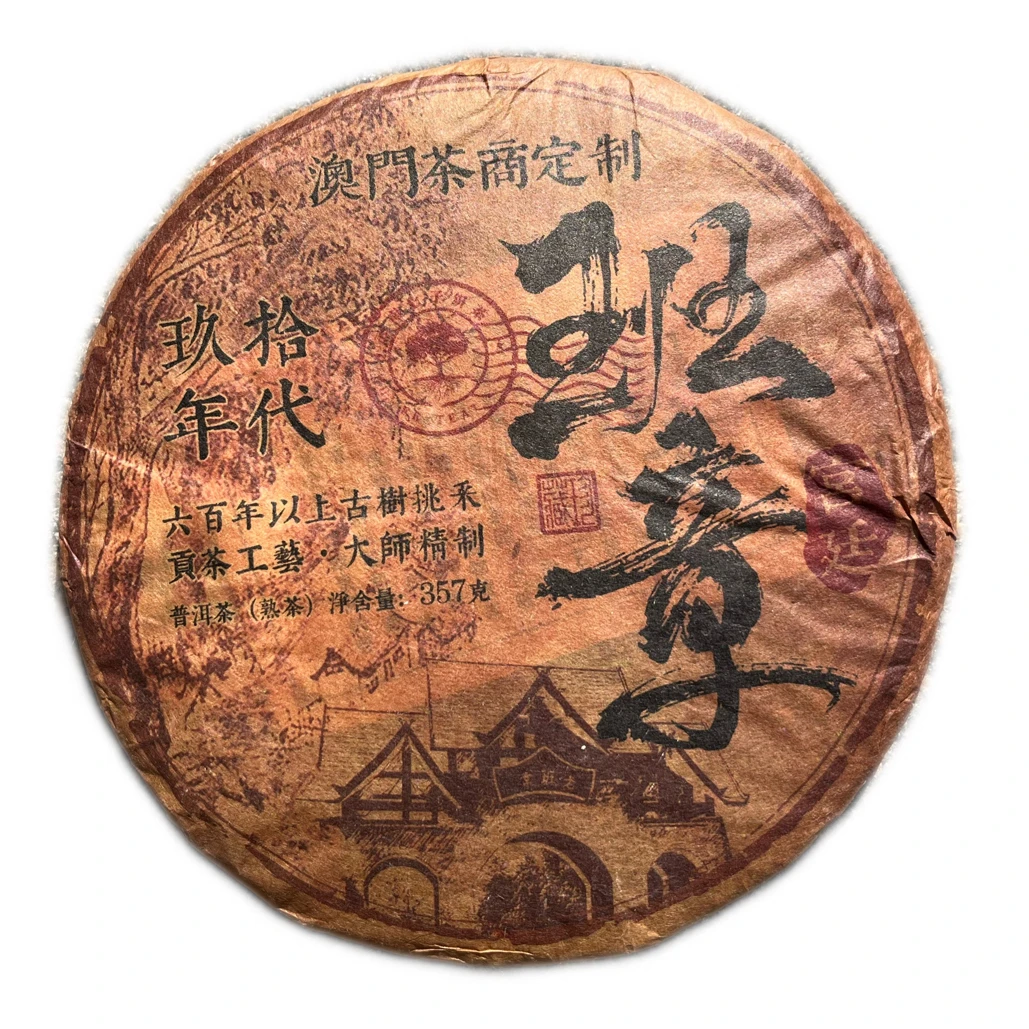 澳門茶商定制
班章
玖拾
年代
六百年以上古樹挑采
貢茶工藝·大師精制
普洱茶（熟茶）淨含量：357克